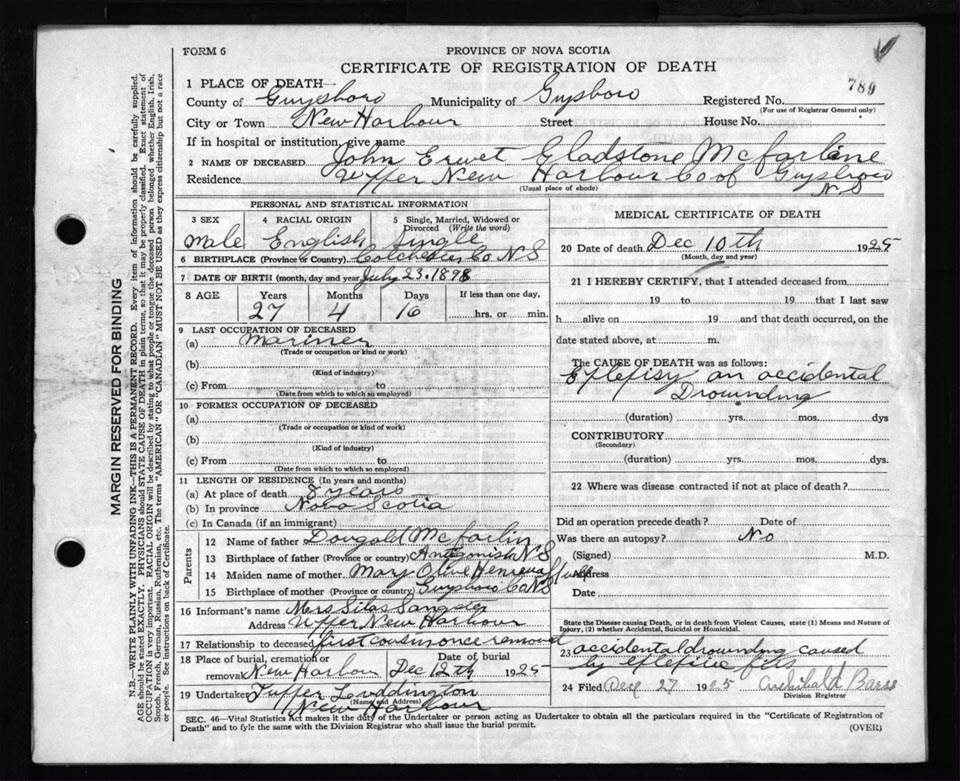 FORM 6
PROVINCE OF NOVA SCOTIA
CERTIFICATE OF REGISTRATION OF DEATH
789
1 PLACE OF DEATH
County of Guysboro Municipality of Guysboro Registered No.
(For use of Registrar General only)
City or Town New Harbour Street House No.
If in hospital or institution, give name
2 NAME OF DECEASED John Gladstone McFarlane
Residence Upper New Harbour Co of Guysboro
N S
(Usual place of abode)
PERSONAL AND STATISTICAL INFORMATION
3 SEX 4 RACIAL ORIGIN 5 Single, Married, Widowed or Divorced (Write the word)
Male English single
6 BIRTHPLACE (Province or Country) Colchester Co N S
7 DATE OF BIRTH (month, day and year) July 23. 1898
8 AGE Years Months Days If less than one day,
27 4 16 hrs. or min.
9 LAST OCCUPATION OF DECEASED
(a) Mariner
(Trade or occupation or kind of work)
(b)
(Kind of industry)
(c) From to
(Date from which to which so employed)
10 FORMER OCCUPATION OF DECEASED
(a)
(Trade or occupation or kind of work)
(b)
(Kind of industry)
(c) From to
(Date from which to which so employed)
11 LENGTH OF RESIDENCE (In years and months)
(a) At place of death 8 years
(b) In province Nova Scotia
(c) In Canada (if an immigrant)
Parents
12 Name of father Dougald McFarlin
13 Birthplace of father (Province or country) N.S
14 Maiden name of mother Mary Olive
15 Birthplace of mother (Province or country) Guysboro Co N S
16 Informant's name Mrs Silas Sangster
Address Upper New Harbour
17 Relationship to deceased first cousin once removed
18 Place of burial, cremation or removal New Harbour Date of burial Dec 12th 1925
19 Undertaker Luddington
(Name and Address)
New Harbour
MEDICAL CERTIFICATE OF DEATH
20 Date of death Dec 10th 1925
(Month, day and year)
21 I HEREBY CERTIFY, that I attended deceased from
19 to 19 that I last saw
h alive on 19 and that death occurred, on the
date stated above, at m.
The CAUSE OF DEATH was as follows:
Eplepisy an accidental
Drounding
(duration) yrs. mos. dys
CONTRIBUTORY
(Secondary)
(duration) yrs. mos. dys.
22 Where was disease contracted if not at place of death?
Did an operation precede death? Date of
Was there an autopsy? No
(Signed) M.D.
Address
Date
State the Disease causing Death, or in death from Violent Causes, state (1) Means and Nature of
Injury, (2) whether Accidental, Suicidal or Homicidal.
23 accidental drounding caused
by epleptic fits
24 Filed Dec 27 1925 Archibald Barss
Division Registrar
SEC. 46—Vital Statistics Act makes it the duty of the Undertaker or person acting as Undertaker to obtain all the particulars required in the "Certificate of Registration of
Death" and to fyle the same with the Division Registrar who shall issue the burial permit.
(OVER)
MARGIN RESERVED FOR BINDING
N.B.—WRITE PLAINLY WITH UNFADING INK—THIS IS A PERMANENT RECORD. Every item of information should be carefully supplied.
AGE should be stated EXACTLY. PHYSICIANS should STATE CAUSE OF DEATH in plain terms, so that it may be properly classified. Exact statement of
OCCUPATION is very important. RACIAL ORIGIN will be described by stating to what people or tongue the deceased person belonged whether English, Irish,
Scotch, French, German, Russian, Ruthenian, etc. The terms "AMERICAN" OR "CANADIAN" MUST NOT BE USED as they express citizenship but not a race
or people. See instructions on back of Certificate.